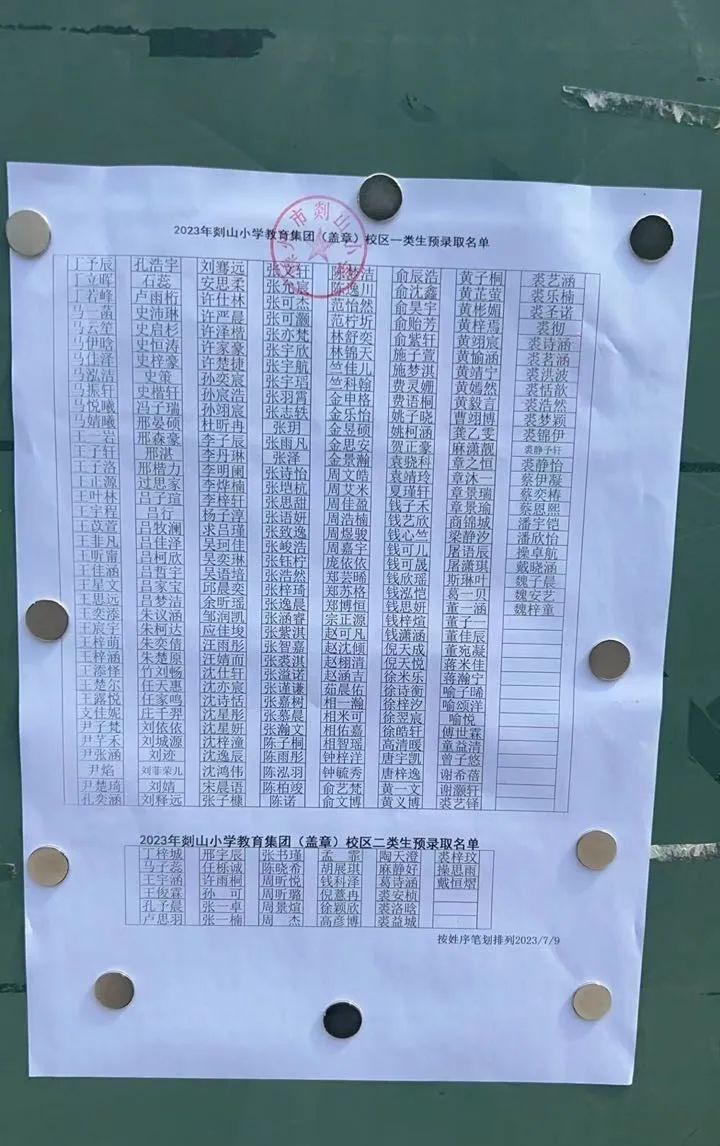 2023年剡山小学教育集团（盖章）校区一类生预录取名单
丁予辰 孔浩宇 刘骞远 张文轩 俞辰浩 黄子桐 裘艺涵
丁立晖 石蕊 安思柔 张允宸 陈逸川 俞沈鑫 黄芷萤 裘乐楠
丁若峰 卢雨桁 许仕林 张可杰 范怡然 俞昊宇 黄彬媚 裘圣诺
马一菡 史沛琳 许严晨 张可灏 范柠圻 俞贻芳 黄梓焉 裘彻
马云笙 史启杉 许泽楷 张亦梵 林舒奕 俞紫轩 黄翊宸 裘诗涵
马伊晗 史恒涛 许家豪 张宇欣 林锦天 施子萱 黄愉涵 裘茗涵
马仕泽 史梓豪 许楚捷 张宇航 竺佳儿 施梦淇 黄靖宁 裘宸波
马泓洁 史策 孙奕宸 张宇瑶 竺科翰 费灵姗 黄嫣然 裘恬歆
马振轩 史楷轩 孙宸浩 张羽霄 金申格 费语桐 黄毅言 裘浩然
马悦曦 冯子瑞 孙翊宸 张志轶 金乐怡 姚子晓 曹翊博 裘梦颖
马婧曦 邢晏硕 杜昕冉 张玥 金昱硕 姚柯涵 龚乙雯 裘锦伊
王一岩 邢森豪 李子辰 张雨凡 金思安 贺正豪 麻潇靓 裘静予轩
王子轩 邢湛 李丹琳 张泽 金景瀚 袁骁科 章之恒 裘静怡
王子洛 邢楷力 李明阑 张诗怡 周文皓 袁靖玲 章沐一 蔡伊凝
王正源 过思家 李烨楠 张垲杭 周艾米 夏瑾轩 章景瑞 蔡奕椿
王叶林 吕子瑄 李梓轩 张思甜 周佳盈 钱子禾 章景瑜 蔡恩熙
王宇程 吕行 杨子淳 张语妍 周浩楠 钱艺欣 商锦城 潘宇铠
王苡萱 吕牧澜 求吕瑾 张致逸 周煜骏 钱心竺 梁静汐 潘欣怡
王非凡 吕佳泽 吴珂佳 张峻浩 周嘉宇 钱可儿 屠语辰 操卓航
王昕甯 吕柯欣 吴奕琳 张钰柠 庞依依 钱可晟 屠潇琪 戴晓涵
王佳涵 吕哲宇 吴语培 张浩然 郑芸晞 钱欣瑶 斯琳叶 魏子晨
王星文 吕家宝 邱晨奕 张梓琦 郑苏格 钱泓恺 葛一贝 魏安艺
王思远 吕梦洁 余昕瑶 张逸晨 郑博恒 钱思妍 董一涵 魏梓童
王奕添 朱议涵 邹润凯 张涵睿 宗正源 钱梓煊 董子一
王辰子 朱柯达 应佳埈 张紫淇 赵可凡 钱潇涵 董佳辰
王梓萌 朱奕倍 汪雨彤 张智嘉 赵沈倾 倪天成 董宛凝
王梓涵 朱楚原 汪婧而 张裘淇 赵栩清 倪天悦 蒋米佳
王添怿 竹刘畅 沈仕轩 张溢诺 赵涵吉 徐米乐 蒋瀚宁
王楚尔 任天惠 沈亦宸 张谨谦 茹晨佑 徐诗衡 喻子晞
王露悦 任家鸣 沈诗恬 张嘉树 相一瀚 徐梓汐 喻颂洋
支佳妮 庄千羿 沈星彤 张慕晨 相米可 徐翌宸 喻悦
尹子梵 刘依依 沈星妍 张瀚文 相佑嘉 徐皓轩 傅世霖
尹芊禾 刘城源 沈梓潼 陈子桐 相智瑶 高清暖 童益清
尹张涵 刘迹 沈逸辰 陈雨彤 钟梓洋 唐宇凯 曾子悠
尹焰 刘菲荣儿 沈鸿伟 陈泓羽 钟毓秀 唐梓逸 谢希蓓
尹楚琦 刘婧 宋晨语 陈柏竣 俞艺梵 黄一文 谢灏轩
孔奕涵 刘释远 张子槺 陈诺 俞文博 黄义博 裘艺铎
2023年剡山小学教育集团（盖章）校区二类生预录取名单
丁梓城 邢宇辰 张书瑾 孟 霏 陶天澄 裘梓玟
马子蕊 任栎诚 陈晓希 胡展琪 麻静好 操思雨
王宇涵 许雨桐 周昕悦 钱科泽 葛诗涵 戴恒熠
王俊霖 孙 可 周昕璐 倪薏冉 裘安桢
孔予晨 张一卓 周景煊 徐颖欣 裘洛晗
卢思羽 张一楠 周 杰 高彦博 裘益城
按姓序笔划排列2023/7/9